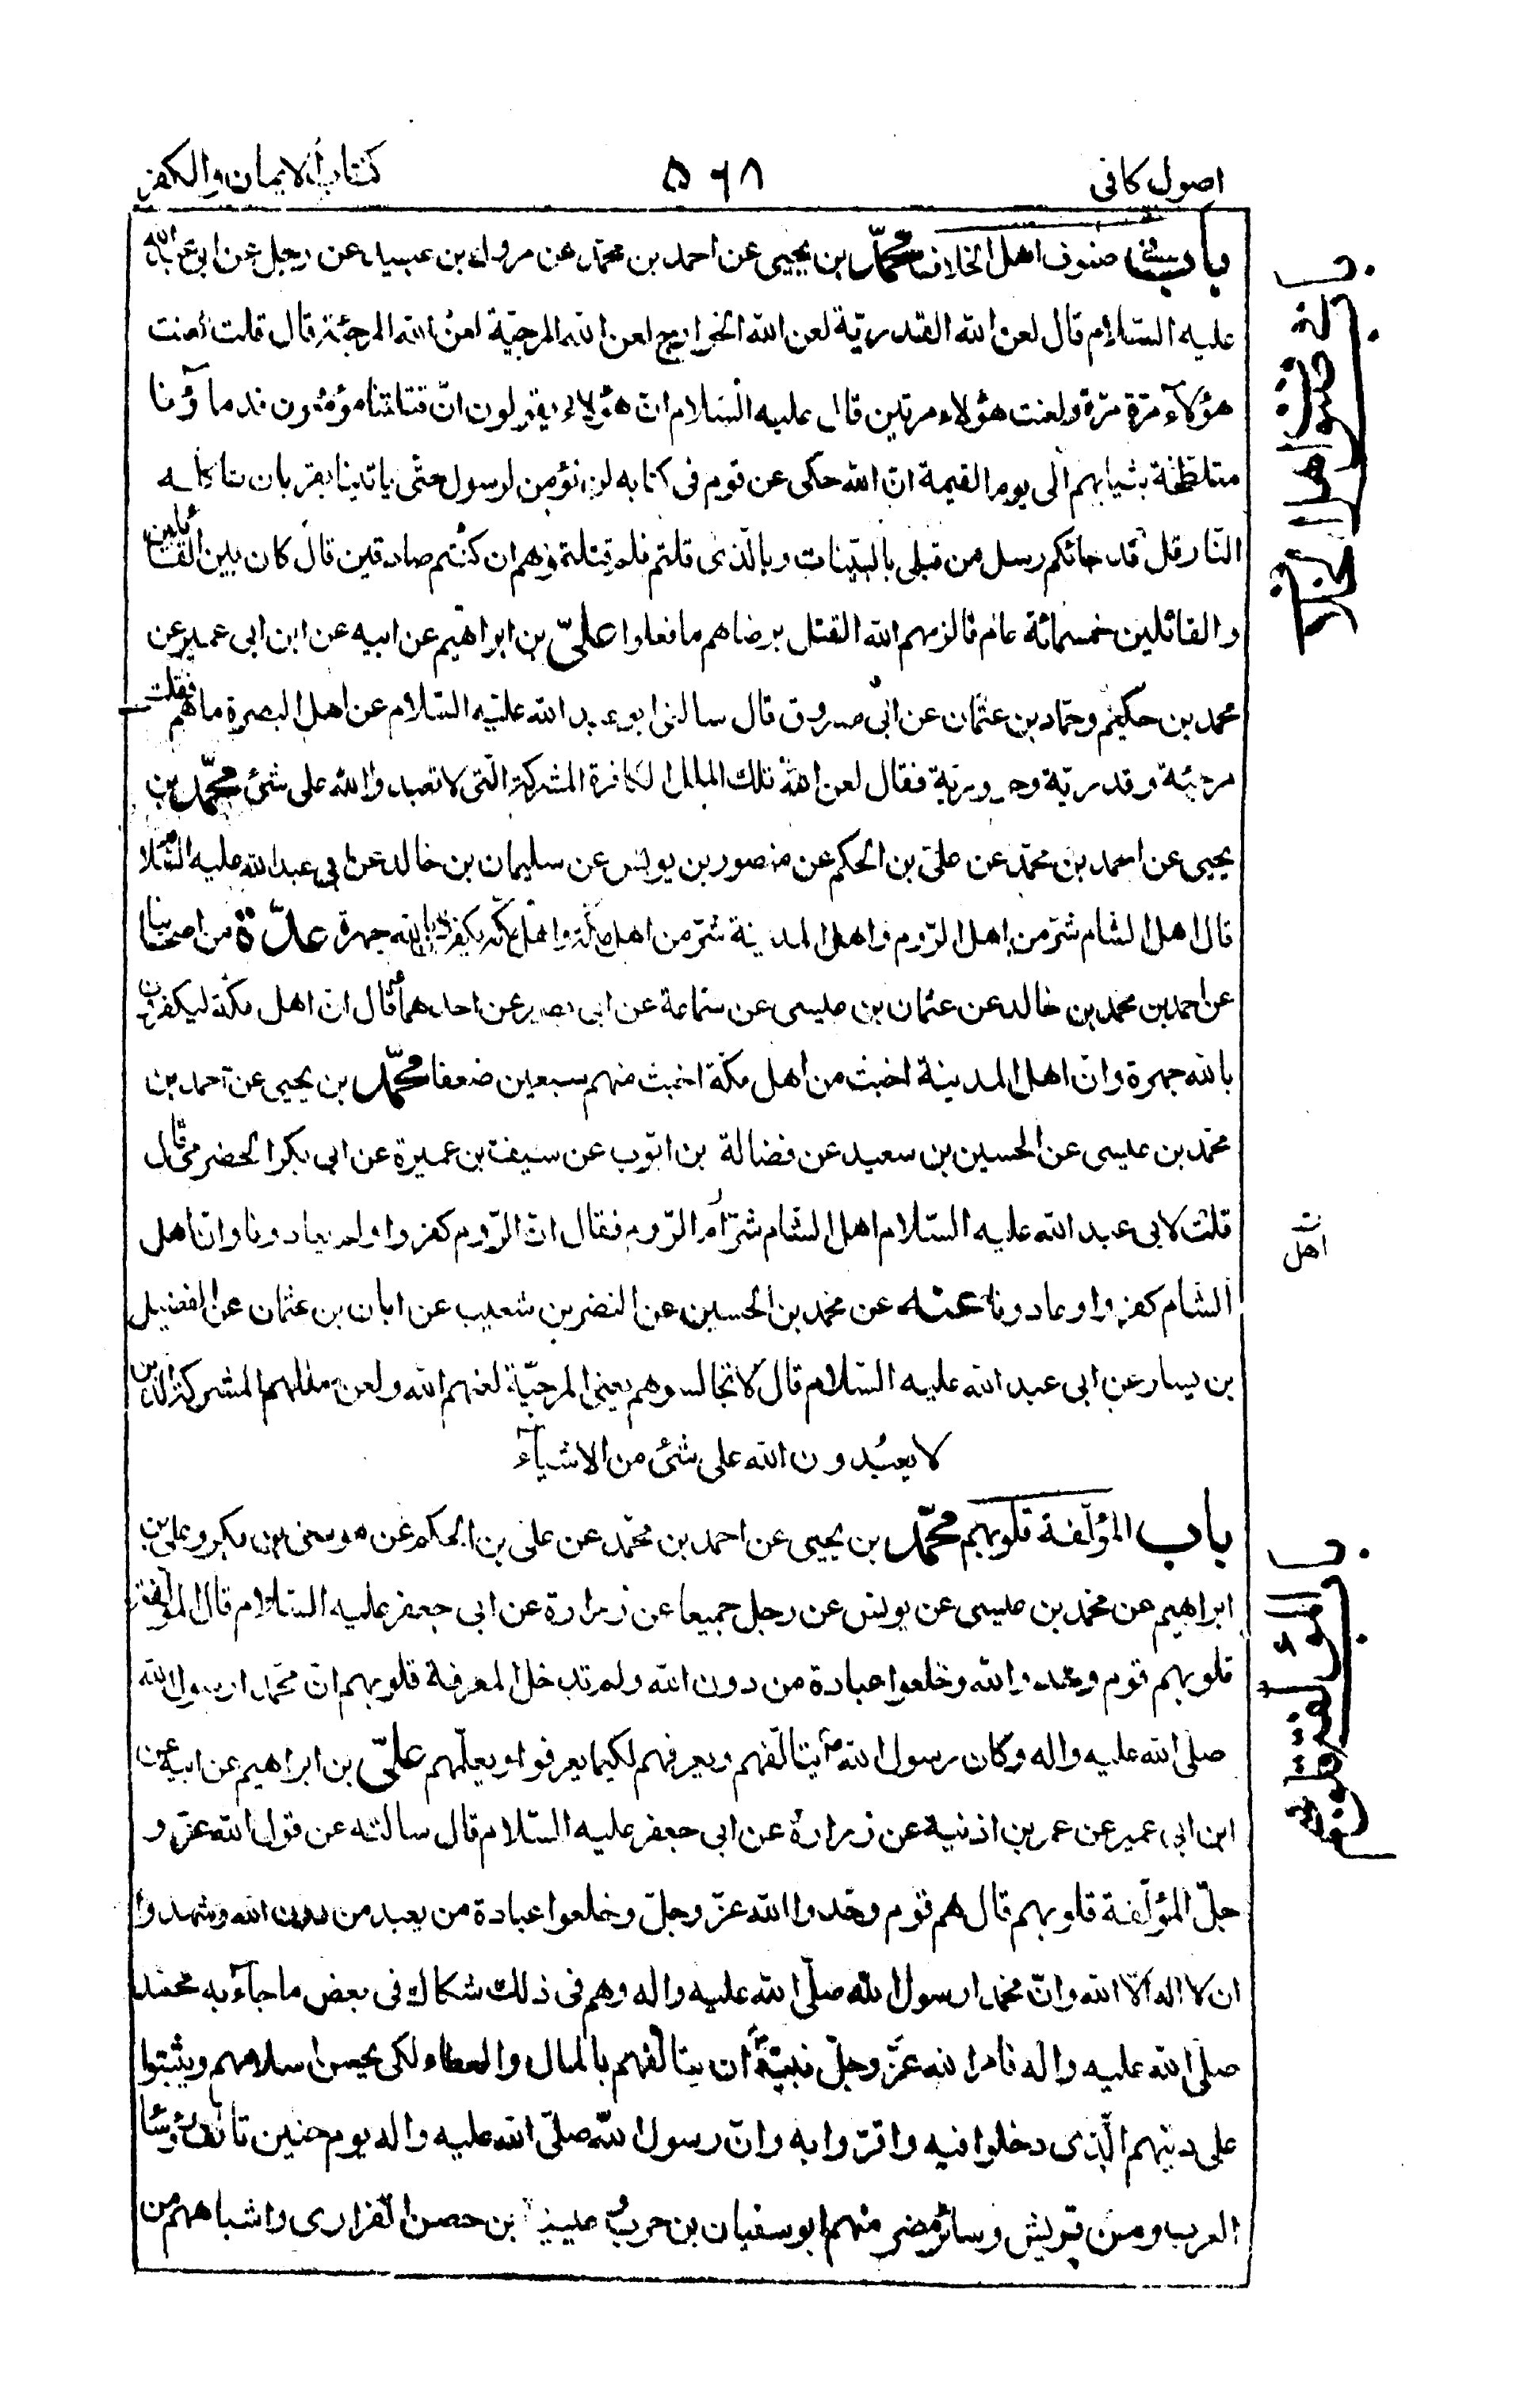 اصول کافی ۵۶۸ کتاب الایمان والکفر
باب فی صنوف اهل الخلاف محمّد بن یحیی عن احمد بن محمّد عن مروك بن عبید عن رجل عن ابی عبد الله
علیه السّلام قال لعن الله القدریّة لعن الله الخوارج لعن الله المرجئة لعن الله المرجئة قال قلت لعنت
هؤلآء مرّة مرّة ولعنت هؤلاء مرتین قال علیه السّلام انّ هؤلاء یقولون انّ قتلتنا مؤمنون فدمآؤنا
متلطّخة بثیابهم الی یوم القیمة انّ الله حکی عن قوم فی کتابه لن نؤمن لرسول حتّی یاتینا بقربان تاکله
النّار قل قد جائکم رسل من قبلی بالبیّنات وبالّذی قلتم فلم قتلتموهم ان کنتم صادقین قال کان بین القاتلین
والقائلین خمسمائة عام فالزمهم الله القتل برضاهم ما فعلوا علیّ بن ابراهیم عن ابیه عن ابن ابی عمیر عن
محمد بن حکیم وحمّاد بن عثمان عن ابی مسروق قال سالنی ابو عبد الله علیه السّلام عن اهل البصرة ما هم فقلت
مرجئة وقدریّة وحروریّة فقال لعن الله تلك الملل الکافرة المشرکة الّتی لا تعبد الله علی شئ محمّد بن
یحیی عن احمد بن محمّد عن علیّ بن الحکم عن منصور بن یونس عن سلیمان بن خالد عن ابی عبد الله علیه السّلام
قال اهل الشام شرّ من اهل الرّوم واهل المدینة شرّ من اهل مکّة واهل مکّة یکفرون بالله جهرة عدّة من اصحابنا
عن احمد بن محمد بن خالد عن عثمان بن عیسی عن سماعة عن ابی بصیر عن احدهما قال انّ اهل مکّة لیکفرون
بالله جهرة وانّ اهل المدینة اخبث من اهل مکّة اخبث منهم سبعین ضعفا محمّد بن یحیی عن احمد بن
محمّد بن عیسی عن الحسین بن سعید عن فضالة بن ایّوب عن سیف بن عمیرة عن ابی بکر الحضرمی قال
قلت لابی عبد الله علیه السّلام اهل الشام شرّ ام الرّوم فقال انّ الرّوم کفروا ولم یعادونا وانّ اهل
الشام کفروا وعادونا عنه عن محمد بن الحسین عن النضر بن شعیب عن ابان بن عثمان عن الفضیل
بن یسار عن ابی عبد الله علیه السّلام قال لا تجالسوهم یعنی المرجئة لعنهم الله ولعن مللهم المشرکة الذین
لا یعبدون الله علی شئ من الاشیآء
باب المؤلّفة قلوبهم محمّد بن یحیی عن احمد بن محمّد عن علی بن الحکم عن موسی بن بکر وعلی بن
ابراهیم عن محمد بن عیسی عن یونس عن رجل جمیعا عن زرارة عن ابی جعفر علیه السّلام قال المؤلفة
قلوبهم قوم وحّدوا الله وخلعوا عبادة من دون الله ولم تدخل المعرفة قلوبهم انّ محمّدا رسول الله
صلی الله علیه واله وکان رسول الله یتالّفهم ویعرفهم لکیما یعرفوا ویعلّمهم علیّ بن ابراهیم عن ابیه عن
ابن ابی عمیر عن عمر بن اذنیة عن زرارة عن ابی جعفر علیه السّلام قال سالته عن قول الله عزّ و
جلّ المؤلّفة قلوبهم قال هم قوم وحّدوا الله عزّ وجلّ وخلعوا عبادة من یعبد من دون الله وشهدوا
ان لا اله الّا الله وانّ محمدا رسول الله صلّی الله علیه واله وهم فی ذلك شکاك فی بعض ما جآء به محمد
صلّی الله علیه واله فامر الله عزّ وجلّ نبیّه ان یتالّفهم بالمال والعطاء لکی یحسن اسلامهم ویثبتوا
علی دینهم الّذی دخلوا فیه واقرّوا به وانّ رسول الله صلّی الله علیه واله یوم حنین تالّف رؤسآء
العرب ومن قریش وسائر مضر منهم ابو سفیان بن حرب وعیینة بن حصن الفزاری واشباههم من
باب فی صنوف اهل الخلاف
اهل
باب المؤلفة قلوبهم